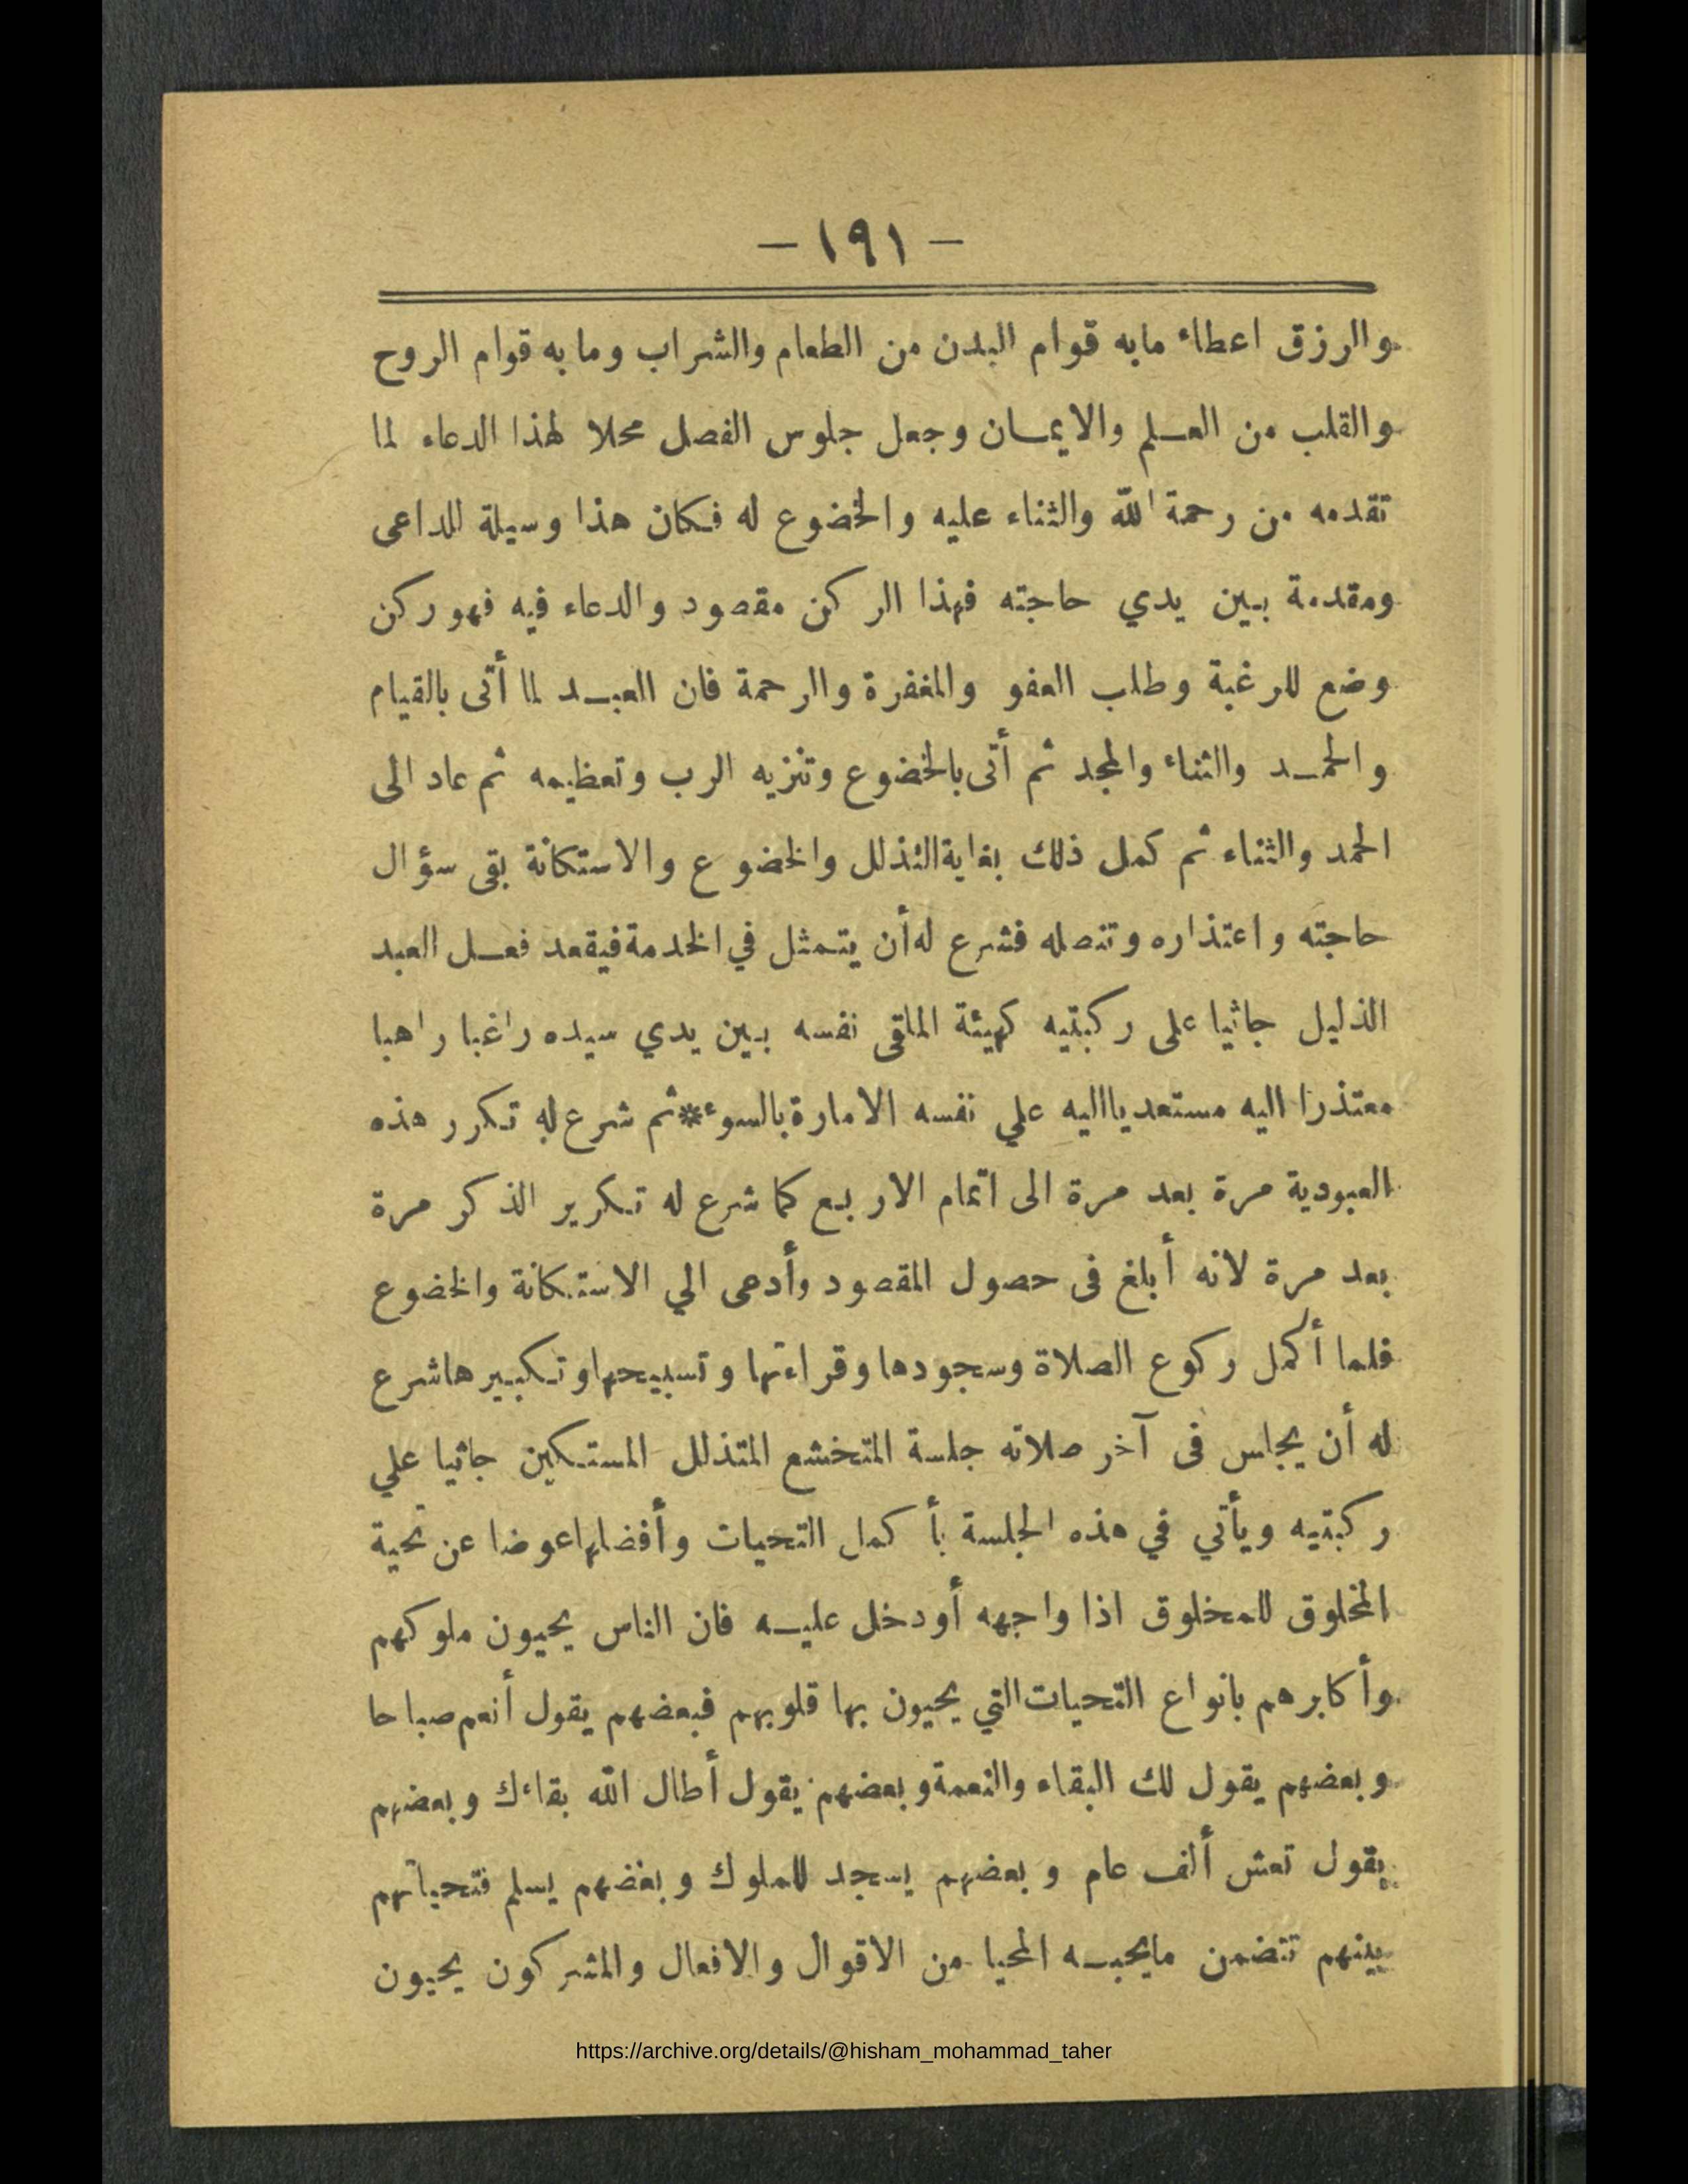 — ١٩١ —
والرزق اعطاء مابه قوام البدن من الطعام والشراب وما به قوام الروح
والقلب من العلم والايمان وجعل جلوس الفصل محلا لهذا الدعاء لما
تقدمه من رحمة الله والثناء عليه والخضوع له فكان هذا وسيلة للداعى
ومقدمة بين يدي حاجته فهذا الركن مقصود والدعاء فيه فهو ركن
وضع للرغبة وطلب العفو والمغفرة والرحمة فان العبد لما أتى بالقيام
والحمد والثناء والمجد ثم أتى بالخضوع وتنزيه الرب وتعظيمه ثم عاد الى
الحمد والثناء ثم كمل ذلك بغاية التذلل والخضوع والاستكانة بقى سؤال
حاجته واعتذاره وتنصله فشرع له أن يتمثل في الخدمة فيقعد فعل العبد
الذليل جاثيا على ركبتيه كهيئة الملقى نفسه بين يدي سيده راغبا راهبا
معتذرا اليه مستعديا اليه علي نفسه الامارة بالسوء * ثم شرع له تكرر هذه
العبودية مرة بعد مرة الى اتمام الاربع كما شرع له تكرير الذكر مرة
بعد مرة لانه أبلغ فى حصول المقصود وأدعى الي الاستكانة والخضوع
فلما أكمل ركوع الصلاة وسجودها وقراءتها وتسبيحها وتكبيرها شرع
له أن يجلس فى آخر صلاته جلسة المتخشع المتذلل المستكين جاثيا علي
ركبتيه ويأتي في هذه الجلسة بأكمل التحيات وأفضلها عوضا عن تحية
المخلوق للمخلوق اذا واجهه أو دخل عليه فان الناس يحيون ملوكهم
وأكابرهم بانواع التحيات التي يحيون بها قلوبهم فبعضهم يقول أنعم صباحا
وبعضهم يقول لك البقاء والنعمة وبعضهم يقول أطال الله بقاءك وبعضهم
يقول تعش ألف عام وبعضهم يسجد للملوك وبعضهم يسلم فتحياتهم
بينهم تتضمن مايحبه المحيا من الاقوال والافعال والمشركون يحيون
https://archive.org/details/@hisham_mohammad_taher